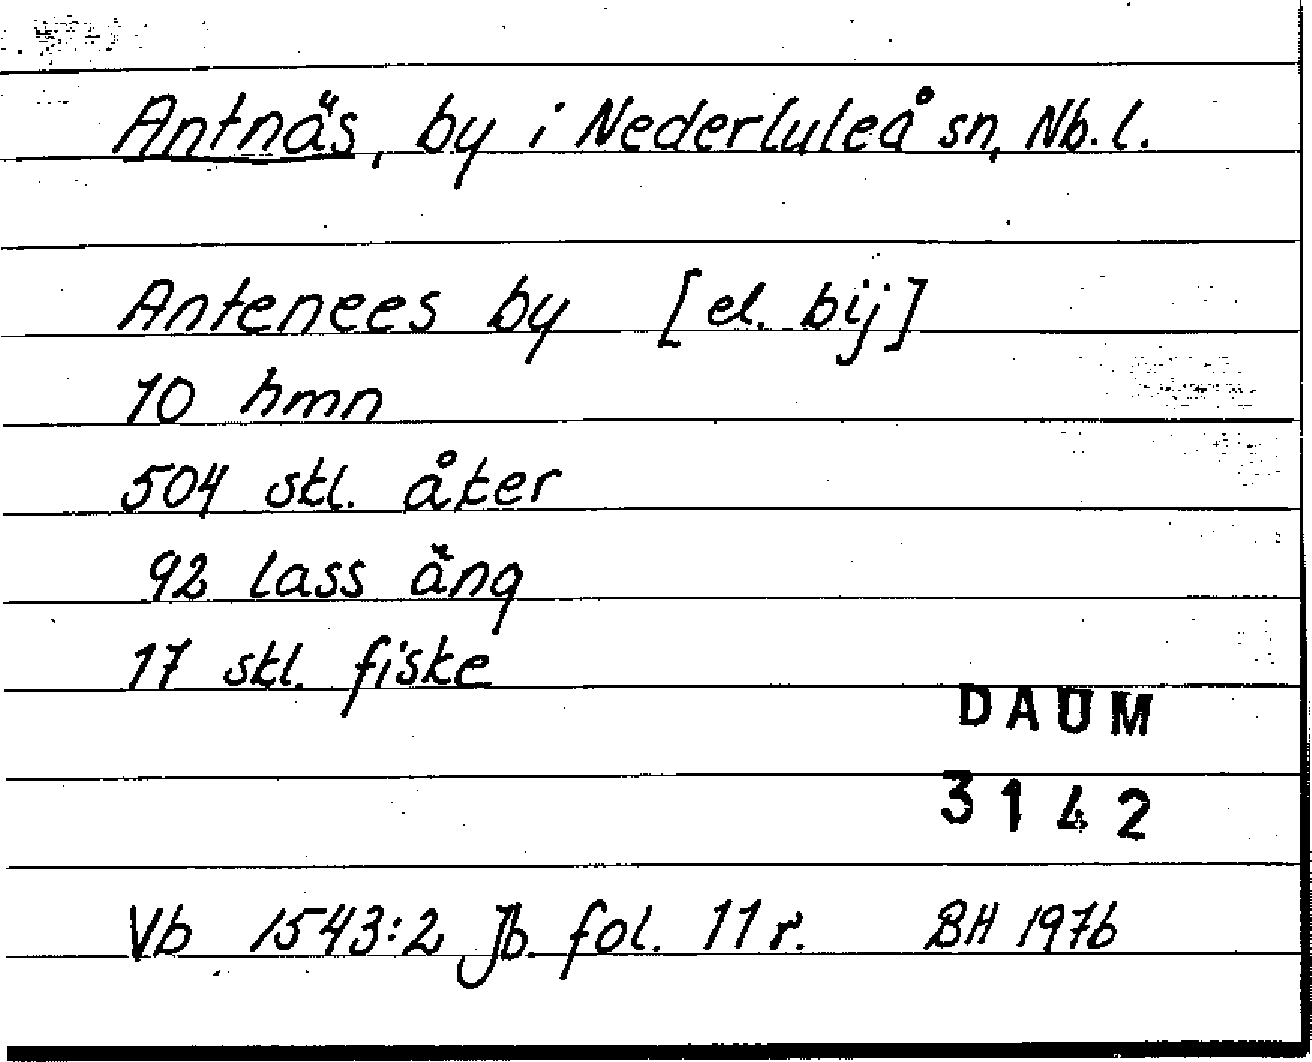 Antnäs, by i Nederluleå sn, Nb. l.
Antenees by [el. bij]
10 hmn
504 skl. åker
92 lass äng
17 skl. fiske
DAUM
3142
Vb 1543:2 Jb. fol. 11 r. BH 1976